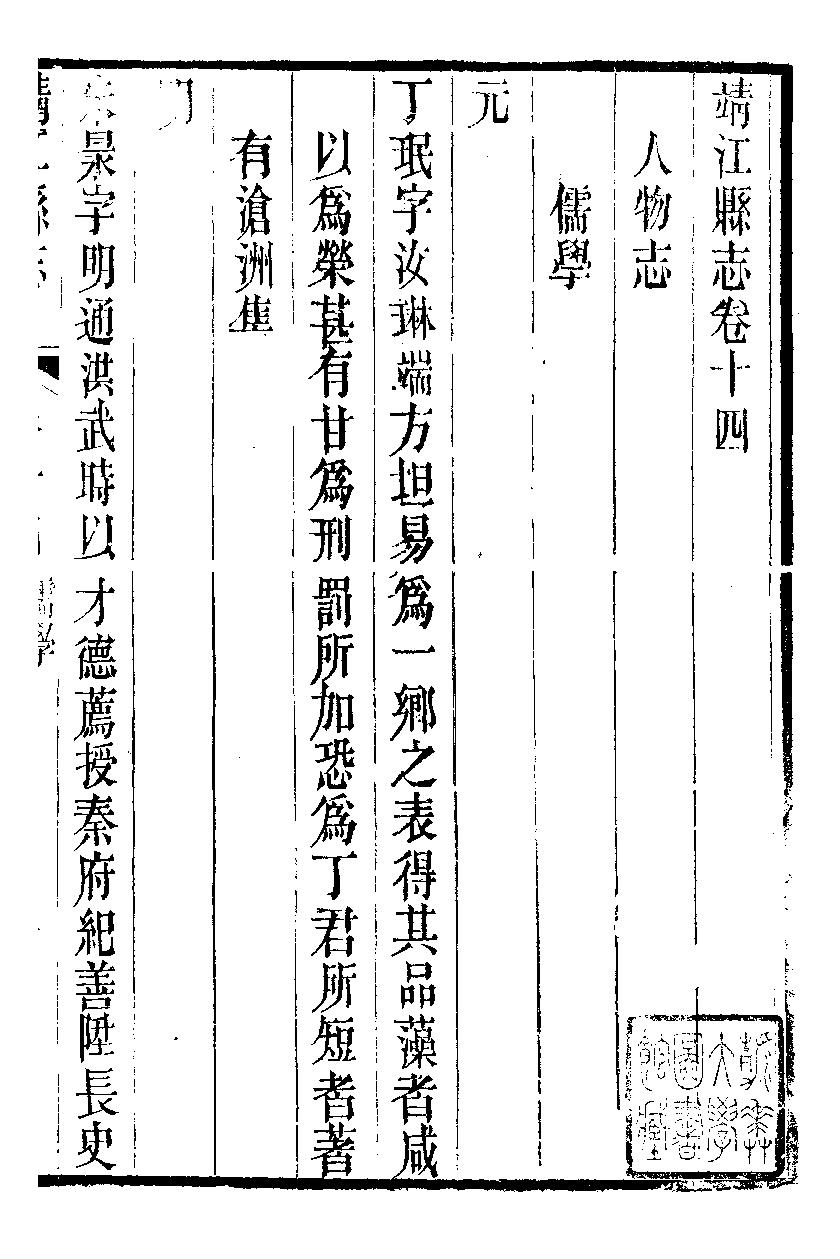 靖江縣志卷十四
人物志
儒學
元
丁珉字汝琳端方坦易爲一鄉之表得其品藻者咸
以爲榮甚有甘爲刑罰所加恐爲丁君所短者著
有滄洲集
明
朱杲字明通洪武時以才德薦授秦府紀善陞長史
靖江縣志
儒學
圖書館藏